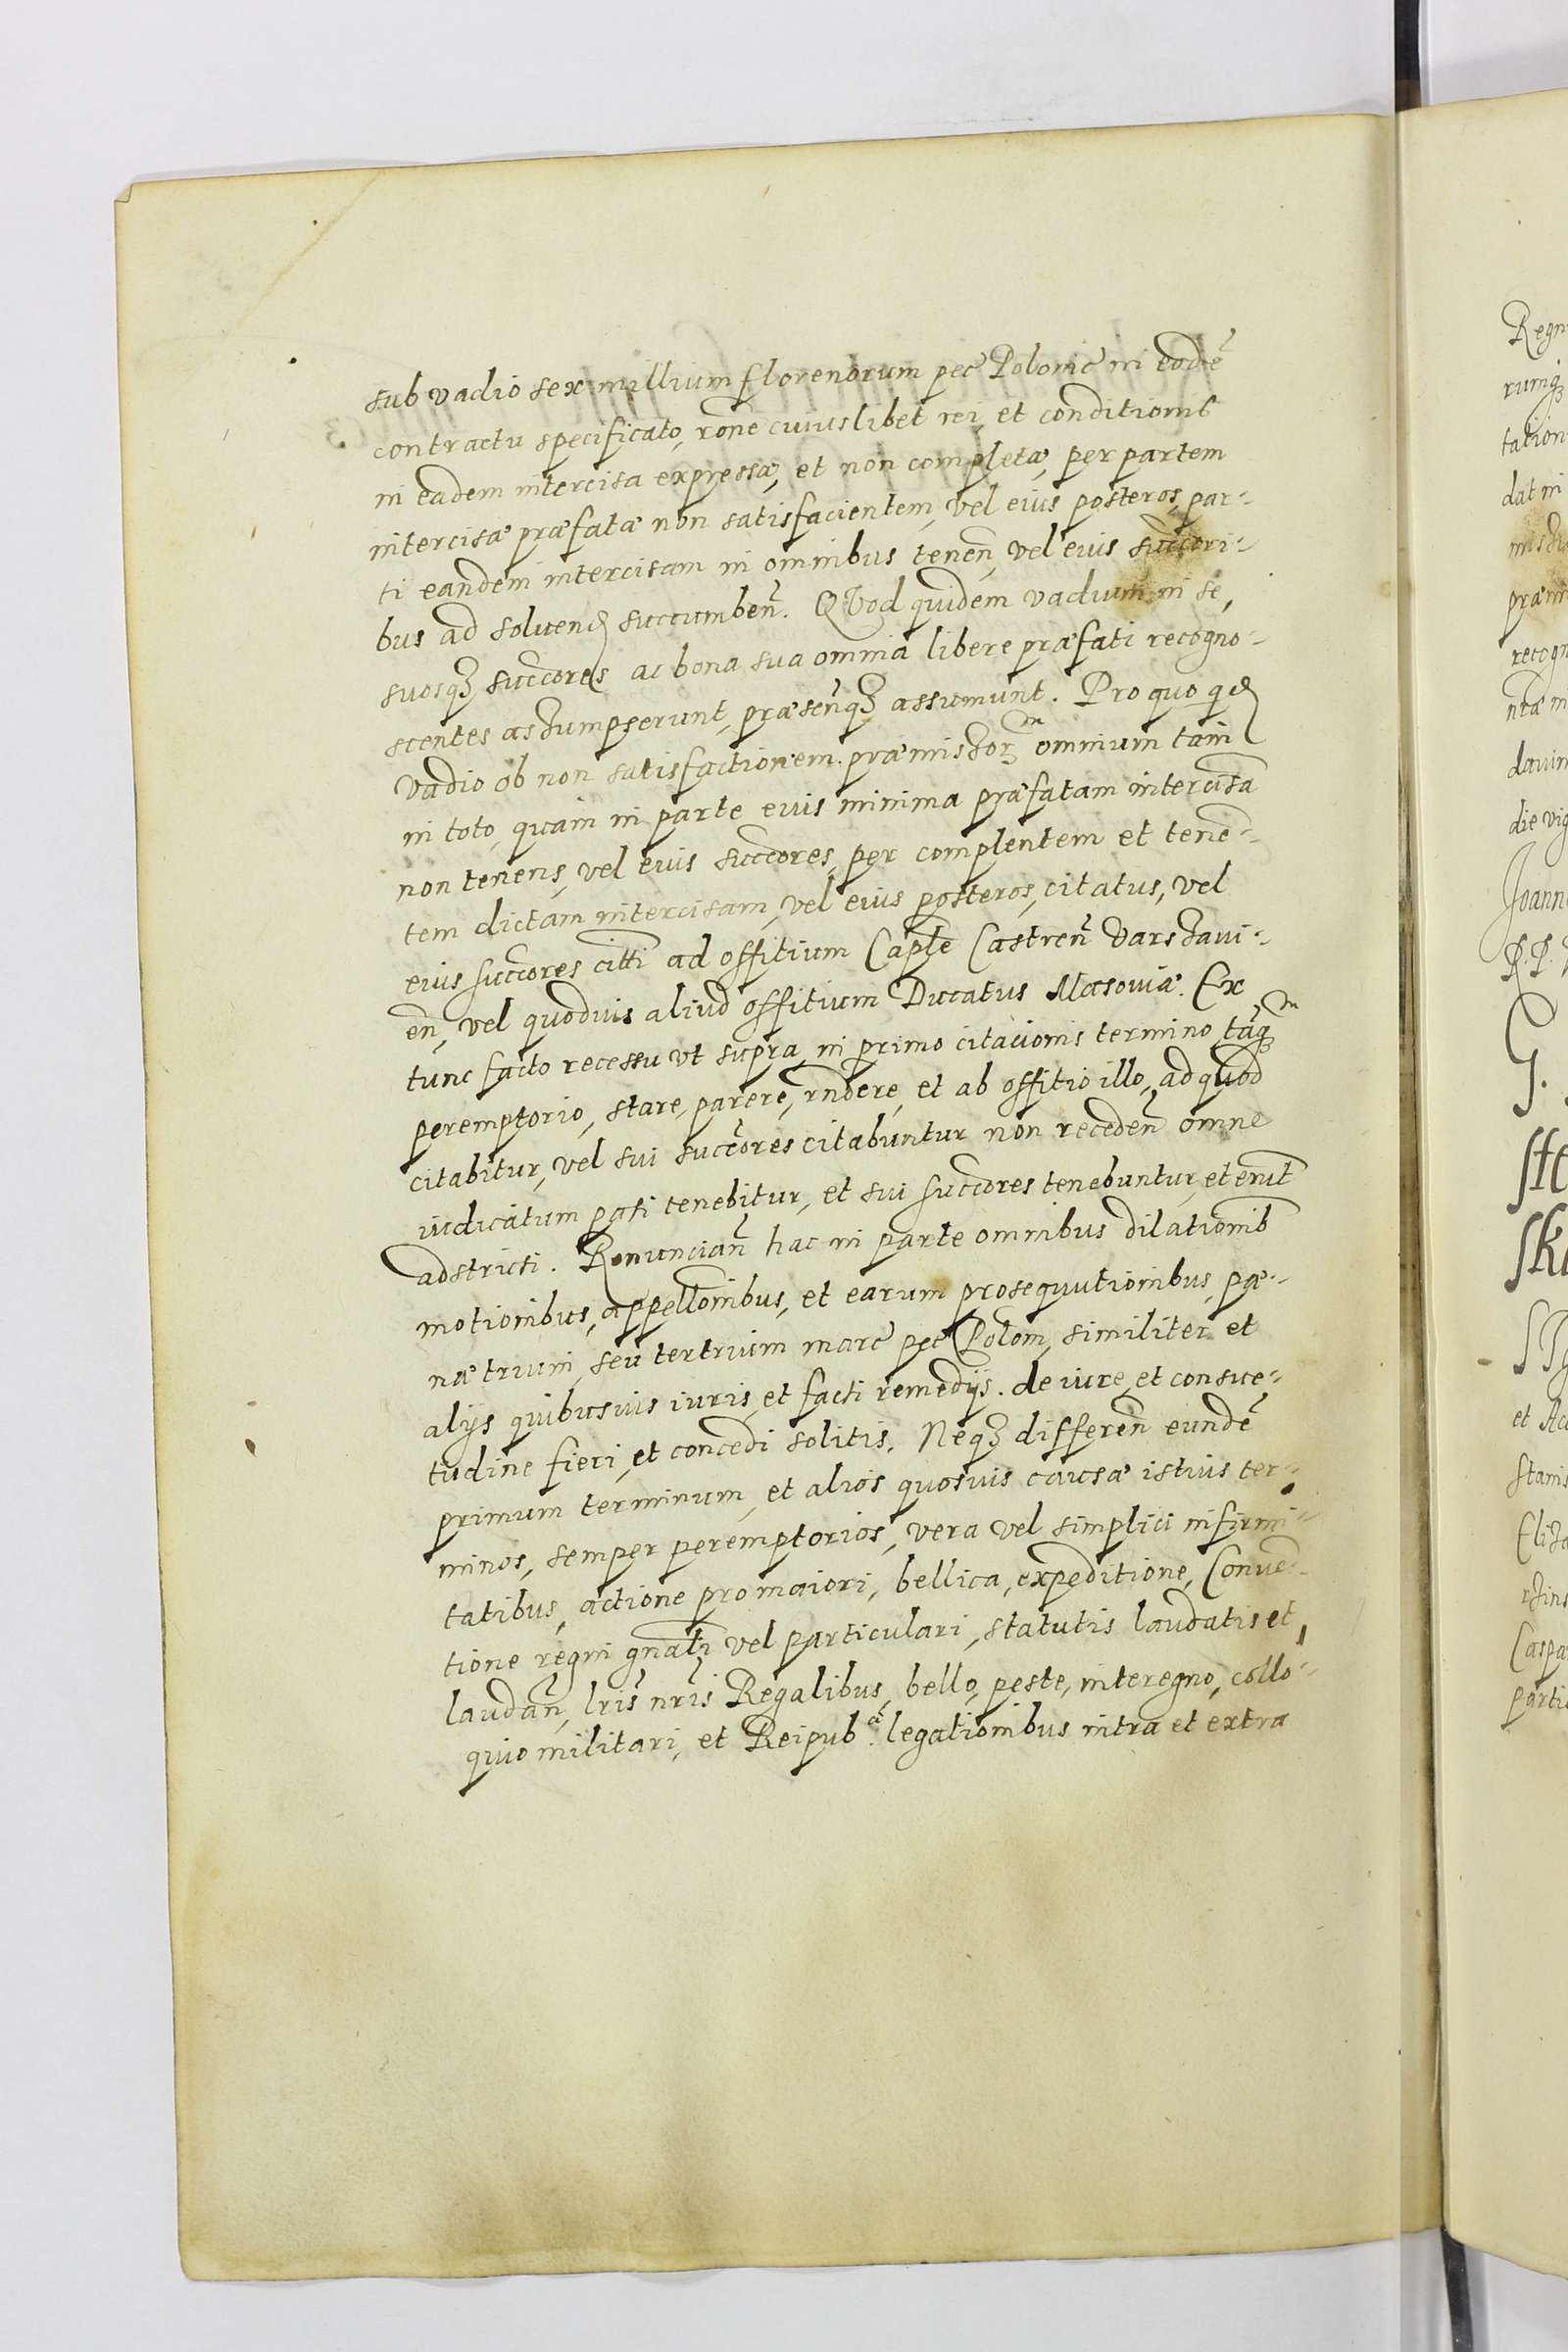 sub vadio sex millium florenorum pec̃ Polonic̃ in eodẽ
contractu specificato, rõne cuiuslibet rei, et conditionis
in eadem intercisa expressæ, et non completæ, per partem
intercisæ præfatæ non satisfacientem, vel eius posteros, par-
ti eandem intercisam in omnibus tenen̄, vel eius succ̄ori-
bus ad soluend succumben̄. QVod quidem vadium in se,
suosq̃ succ̄ores ac bona sua omnia libere præfati recogno-
scentes assumpserunt, præsen̄q̃ assumunt. Pro quo qd
vadio ob non satisfactionem præmissor̃ omnium tam
in toto, quam in parte eius minima præfatam intercisã
non tenens, vel eius succ̄ores, per complentem et tenẽ-
tem dictam intercisam, vel eius posteros, citatus, vel
eius succ̄ores citti ad offitium Caplē Castren̄ Varsaui-
en̄, vel quoduis aliud offitium Ducatus Masouiæ. Ex
tunc facto recessu vt supra, in primo citationis termino tãq̃
peremptorio, stare, parere, rñdere, et ab offitio illo, ad quod
citabitur, vel sui succ̄ores citabuntur non receden̄ omne
iudicatum pati tenebitur, et sui succ̄ores tenebuntur, et erũt
adstricti. Renuncian̄ hac in parte omnibus dilationib
motionibus, appellōnibus, et earum prosequutionibus, pæ-
næ trium, seu tertrium marc̃ pec̃ Polon̄, similiter et
alijs quibusuis iuris, et facti remedijs. de iure, et consue-
tudine fieri, et concedi solitis. Neq̃ differen̄ eundẽ
primum terminum, et alios quosuis causæ istius ter-
minos, semper peremptorios, vera vel simplici infirmi-
tatibus, actione pro maiori, bellica, expeditione, Conuẽ-
tione regni gñali vel particulari, statutis laudatis et
laudan̄, lris̃ nris̃ Regalibus, bello, peste, interegno, collo-
quio militari, et Reipub. legationibus intra et extra